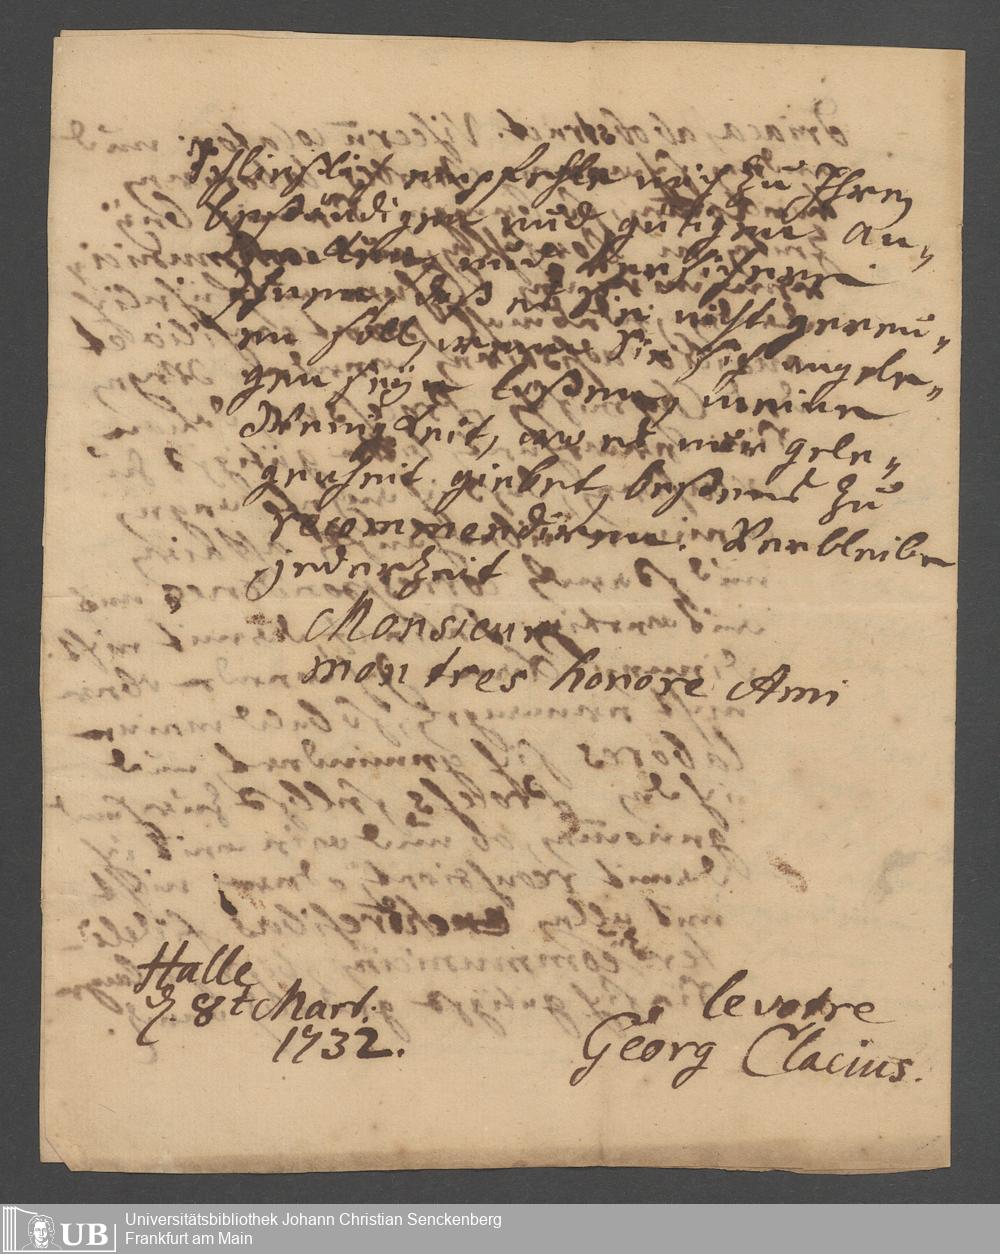 Schließlich empfehle mich zu Ihren
beständigen und gütigen An-
dencken, und versichere
Ihnen, daß es Sie nicht gereu-
en soll, wenn Sie sich angele-
gen seyn laßen, meine
Wenigkeit, wo es nur gele-
genheit giebet, bestens zu
recommendiren. Verbleibe
jederzeit
Monsieur
mon tres honore Ami
Halle
d. 8t Mart.
1732.
le votre
Georg Clacius.
UB
Universitätsbibliothek Johann Christian Senckenberg
Frankfurt am Main